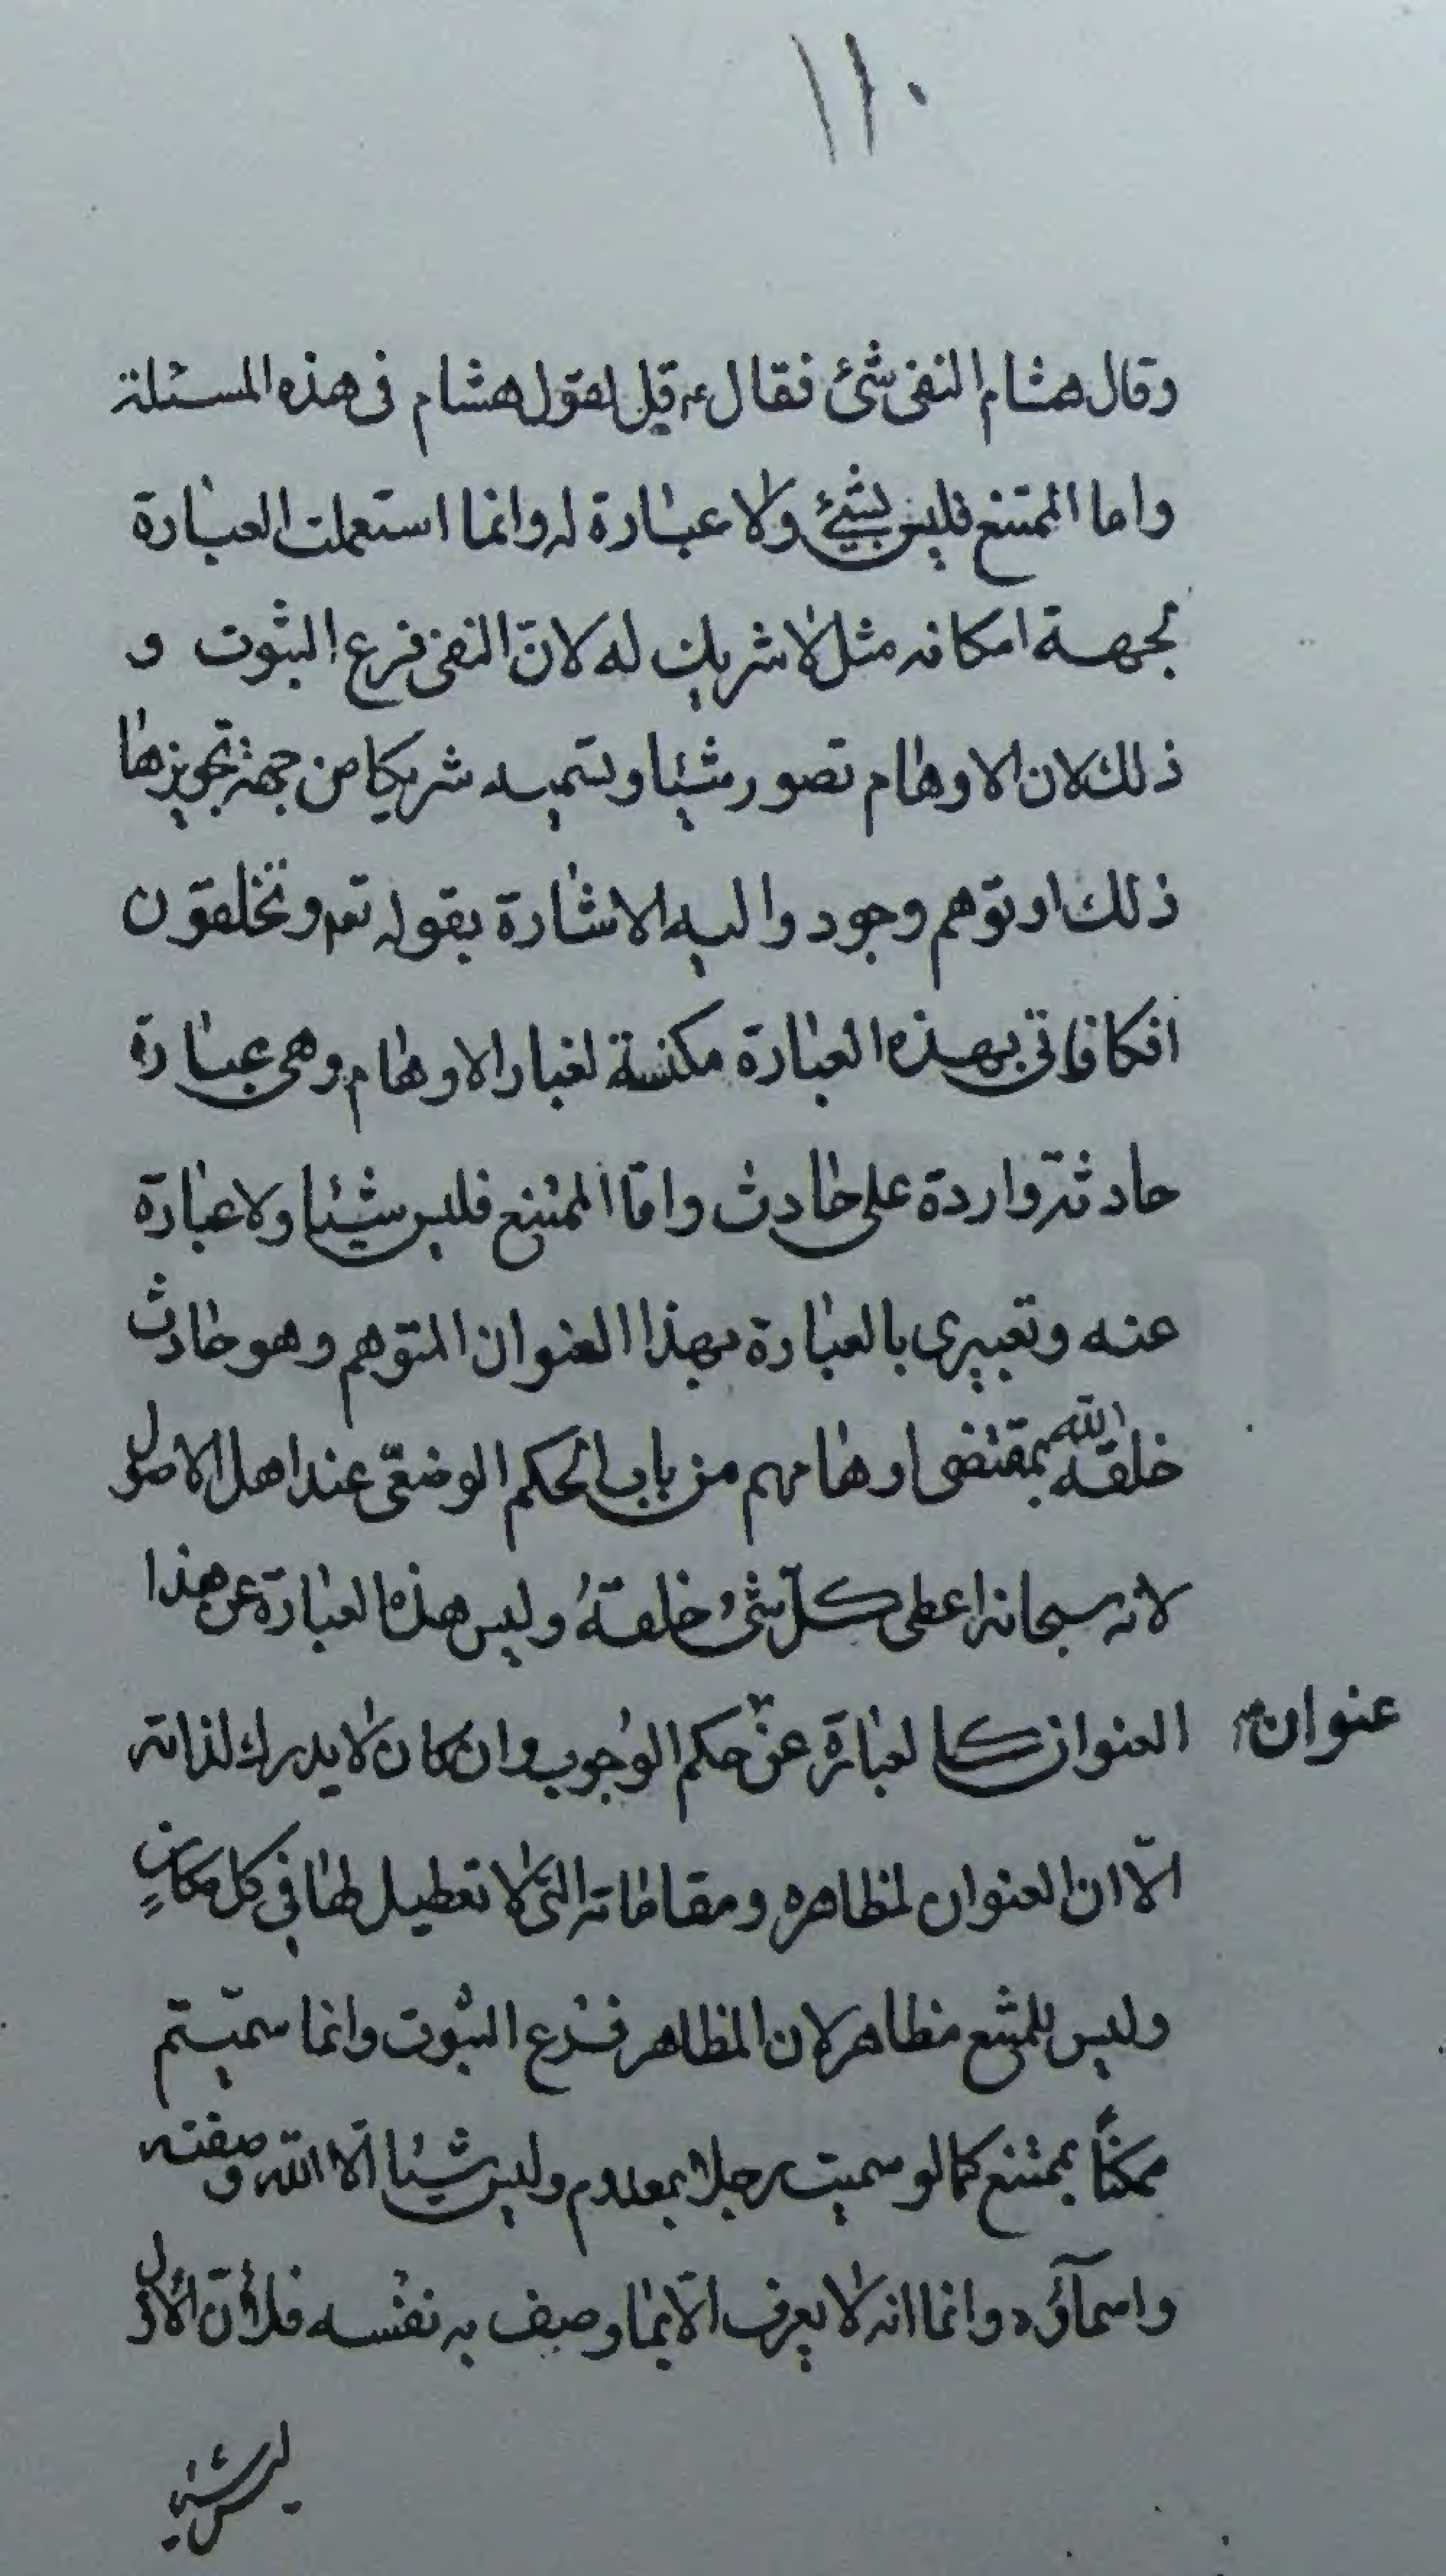 ١١٠
وقال هشام النفى شئ فقال ع قل بقول هشام فى هذه المسئلة
واما الممتنع فليس بشئ ولا عبارة له وانما استعملت العبارة
لجهة امكانه مثل لا شريك له لان النفى فرع الثبوت و
ذلك لان الاوهام تصور شيئا وتسميه شريكا من جهة تجويزها
ذلك او توهم وجود واليه الاشارة بقوله تعم وتخلقون
افكا فاتى بهذه العبارة مكنسة لغبار الاوهام وهى عبارة
حادثة واردة على حادث وامّا الممتنع فليس شيئا ولا عبارة
عنه وتعبيرى بالعبارة بهذا العنوان المتوهم وهو حادث
خلقه الله بمقتضى اوهامهم من باب الحكم الوضعىّ عند اهل الاصول
لانه سبحانه اعطى كل شئ خلقهُ وليس هذه العبارة عن هذا
العنوان كالعبارة عن حكم الوجوب وان كان لا يدرك لذاته
عنوان
الّا ان العنوان لمظاهره ومقاماته التى لا تعطيل لها فى كل مكانٍ
وليس للمتنع مظاهر لان المظاهر فرع الثبوت وانما سمّيتم
ممكنًا بممتنع كما لو سميت رجلا بمعدوم وليس شيئا الّا الله وصفته
واسمآؤه وانما انه لا يعرف الّا بما وصف به نفسه فلانّ الازل
ليس شيئا